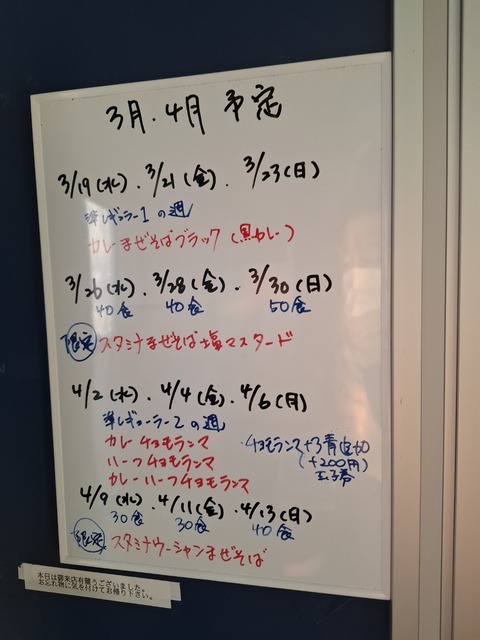 3月.4月 予定
3/19(水).3/21(金).3/23(日)
準レギュラー1の週
カレーまぜそばブラック(黒カレー)
3/26(水).3/28(金).3/30(日)
40食 40食 50食
限定 スタミナまぜそば塩マスタード
4/2(水).4/4(金).4/6(月)
準レギュラー2の週
カレーチョモランマ
ハーフチョモランマ
カレーハーフチョモランマ
・チョモランマ
(+200円)
4/9(水).4/11(金).4/13(日)
30食 30食 40食
限定 スタミナウーシャンまぜそば
本日は御来店有難うございました。
お忘れ物に気を付けてお帰り下さい。